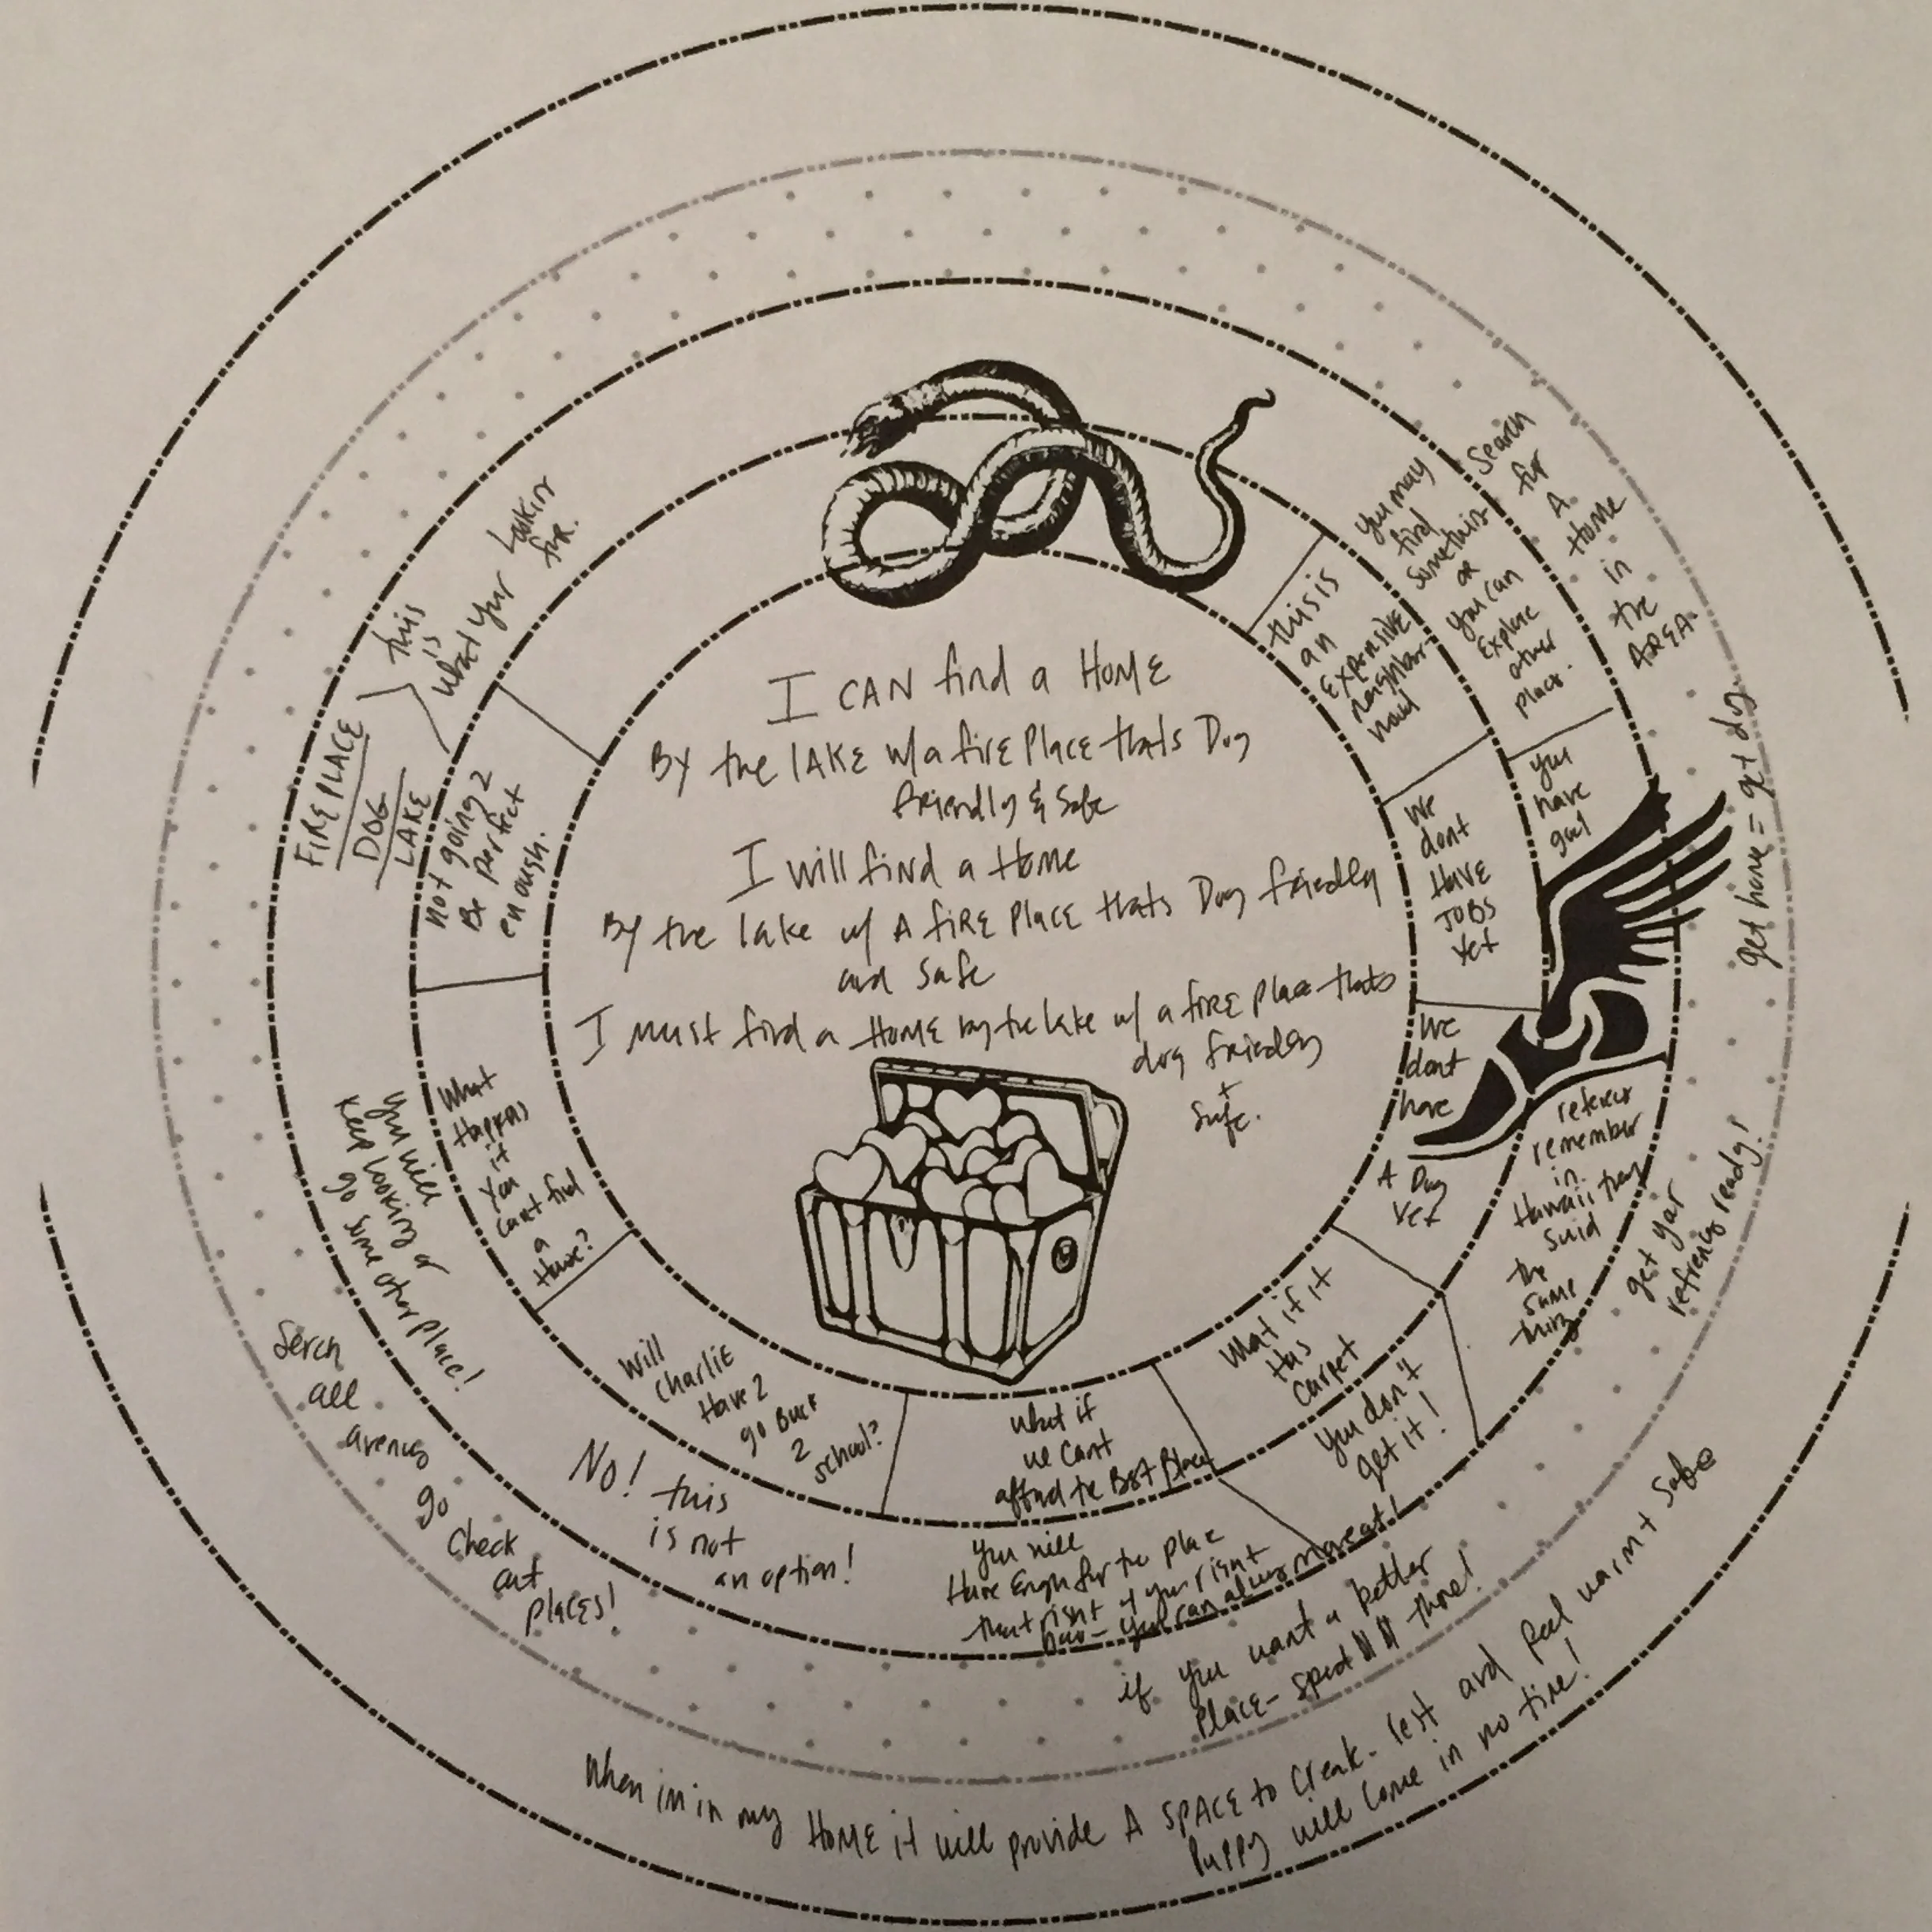 I CAN find a HOME
BY the LAKE w/a firE PlacE thats Dog
friendly & Safe
I will find a Home
By the lake w/ A fiRE PlacE thats Dog friendly
and Safe
I must find a HOME by the lake w/ a fiRE place thats
dog friendly
+
Safe.
this is
an
EXPENSIVE
neighbor-
hood
We
dont
HAVE
JOBS
Yet
We
dont
have
A Dog
Yet
What if it
Has
Carpet
what if
we Cant
afford the BEST Place
Will
CharliE
Have 2
go Back
2
school?
What
Happens
if
You
Cant find
a
Home?
not going 2
BE perfect
enough.
You may
find
Something
or
You can
Explore
other
place.
you
have
remember
in
Hawaii they
said
the
same
thing
You don't
get it!
You will
Have Enough for the place
that you can always move out!
No! this
is not
an option!
You will
Keep looking or
go some other place!
FIREPLACE
DOG
LAKE
this
is
what your
Lookin
for.
Search
for
A
Home
in
the
AREA
get home = get dog
get your
refrences ready!
if you want a better
Place- spend $$ more!
Serch
all
avenus
go
Check
out
PlacEs!
When im in my HOME it will provide A SPACE to Create- rest and feel warm + Safe
Puppy will Come in no time!